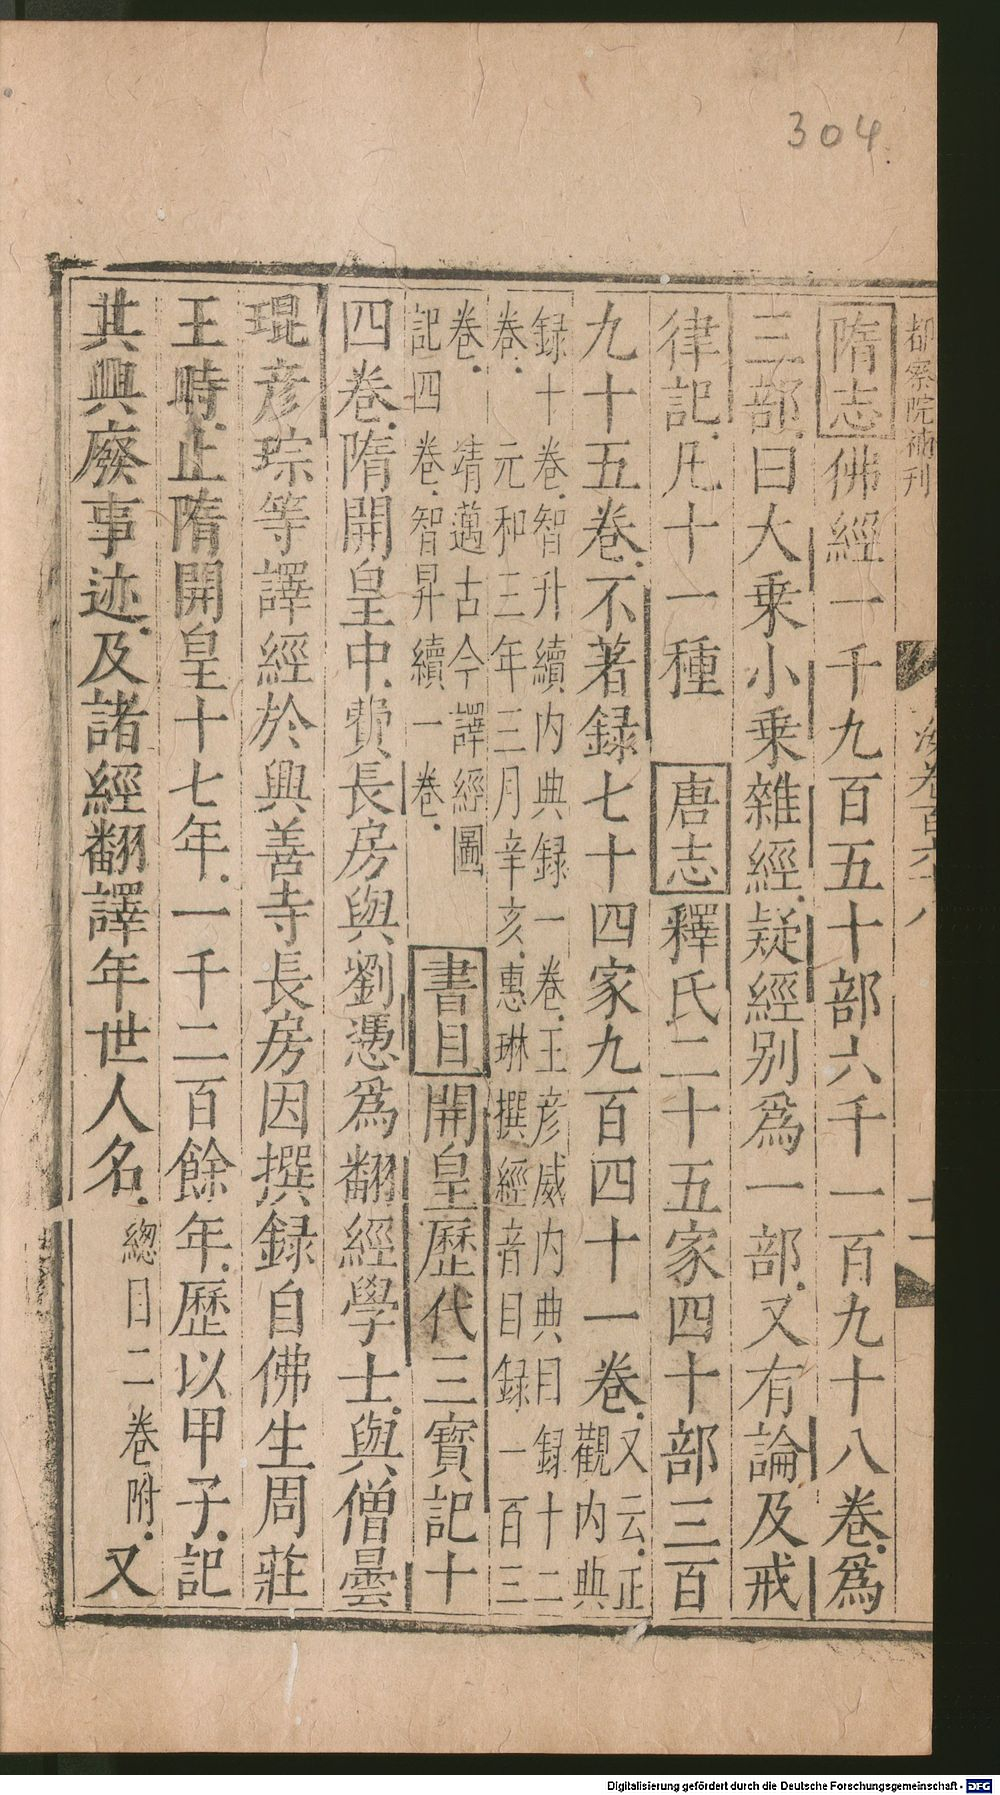 304
都察院補刊
卷百六八
十一
隋志佛經一千九百五十部六千一百九十八卷.爲
三部.曰大乗小乗雜經.疑經别爲一部.又有論及戒
律記.凡十一種 唐志釋氏二十五家四十部三百
九十五卷.不著録七十四家九百四十一卷.又云.正觀内典
録十卷.智升續内典録一卷.王彦威内典目録十二
卷.元和三年三月辛亥.惠琳撰經音目録一百三
卷.靖邁古今譯經圖
記四卷.智昇續一卷. 書目開皇歷代三寳記十
四卷.隋開皇中.費長房與劉慿爲翻經學士.與僧曇
琨彦琮等譯經於興善寺長房因撰録自佛生周莊
王時.止隋開皇十七年.一千二百餘年.歷以甲子.記
其興廢事迹.及諸經翻譯年世人名.緫目二卷附.又
Digitalisierung gefördert durch die Deutsche Forschungsgemeinschaft - DFG